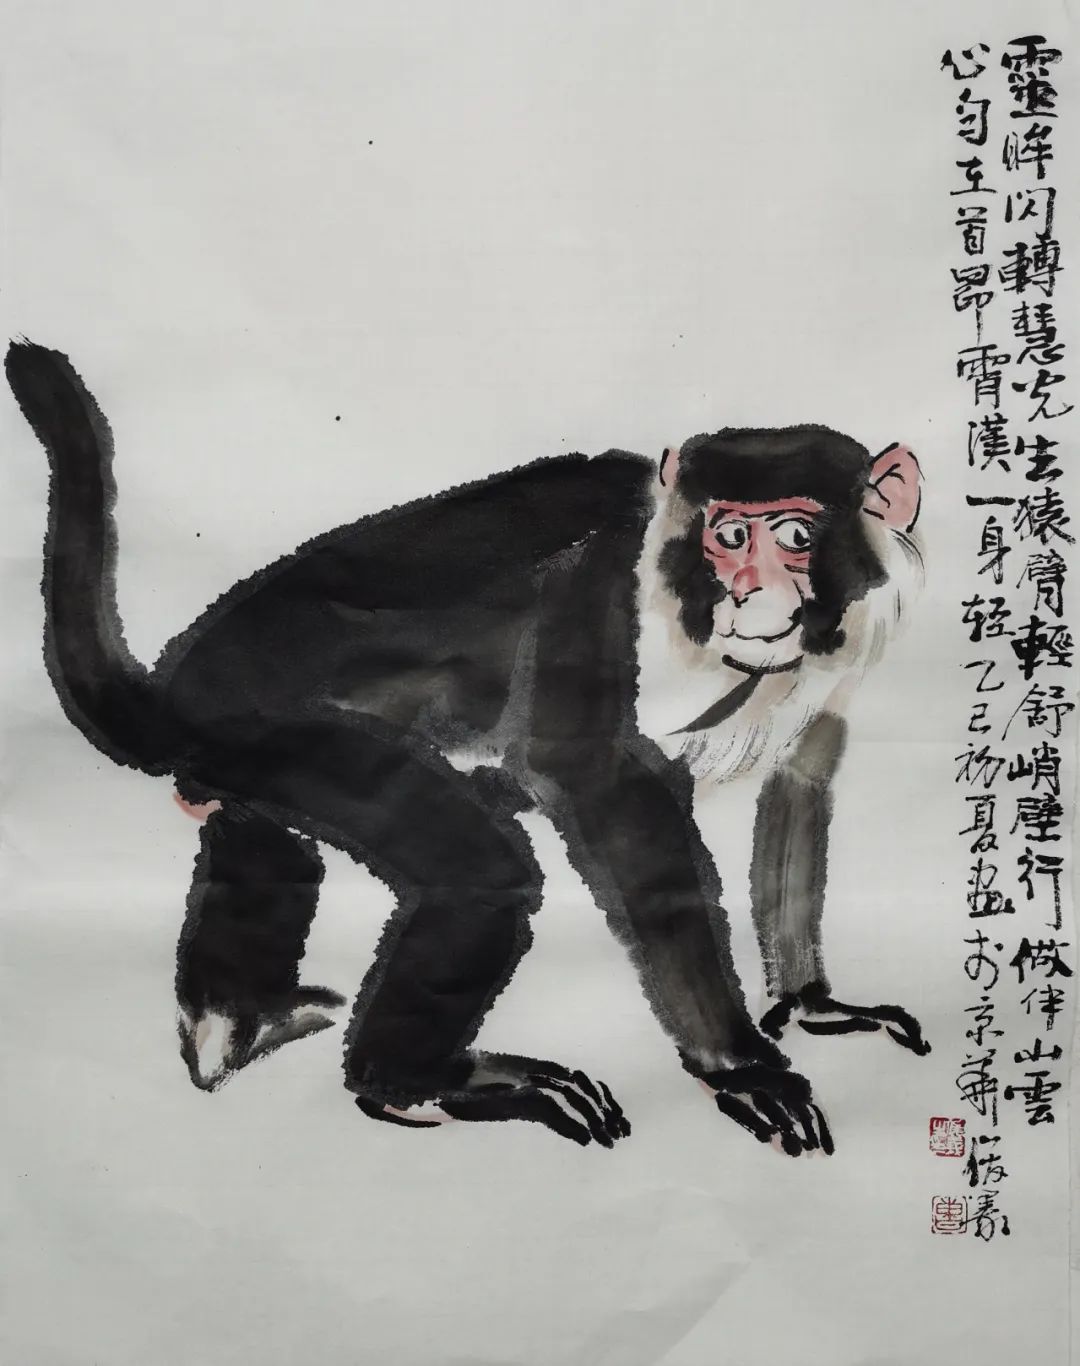 靈眸閃轉慧光生猿臂輕舒峭壁行做伴山雲
心自在首昂霄漢一身轻乙巳初夏畫於京華